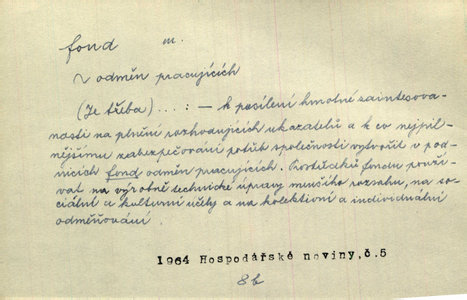 fond m.
~ odměn pracujících
(Je třeba)....: – k posílení hmotné zainteresova-
nosti na plnění rozhodujících ukazatelů a k co nejpil-
nějšímu zabezpečování potřeb společnosti vytvořit v pod-
nicích fond odměn pracujících. Prostředků fondu použí-
vat na výrobně technické úpravy menšího rozsahu, na so-
ciální a kulturní účely a na kolektivní a individuální
odměňování.
1964 Hospodářské noviny,č.5
8b